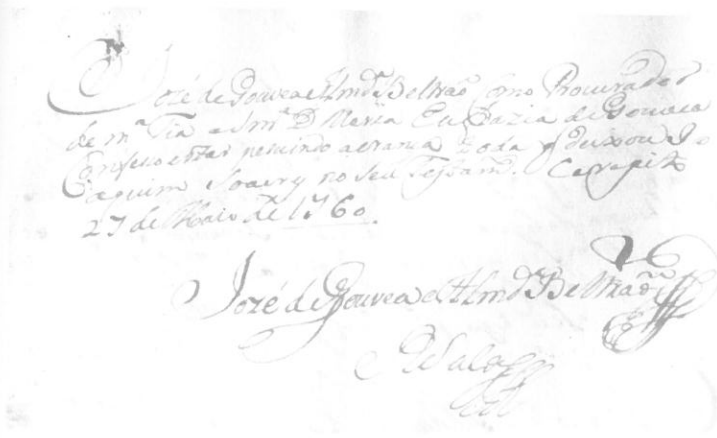 José de Gouvea e Almd.ª Beltrão como Procurador
de m.ª Tia a Sm.ª D. Maria Eufrazia de Gouveia
Confeço estar a eransa toda q̃ deixou Jo
aquim Soares no seu Testam.º
27 de Maio de 1760.
José de Gouvea e Almd.ª Beltrão